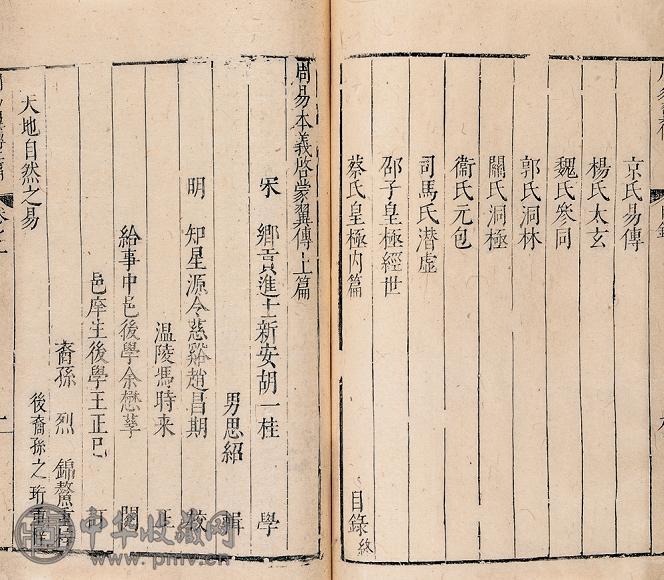 京氏易傳
楊氏太玄
魏氏叅同
郭氏洞林
關氏洞極
衞氏元包
司馬氏潛虛
邵子皇極經世
蔡氏皇極內篇
目錄終
周易本義啓蒙翼傳上篇
宋 鄉貢進士新安胡一桂 學
男思紹 輯
明 知星源令慈谿趙昌期 校
溫陵馮時來
給事中邑後學余懋孳 閱
邑庠生後學王正巳 訂
裔孫 烈 錦鰲
後裔孫之珩重
天地自然之易
中华收藏网
www.pmv.cn